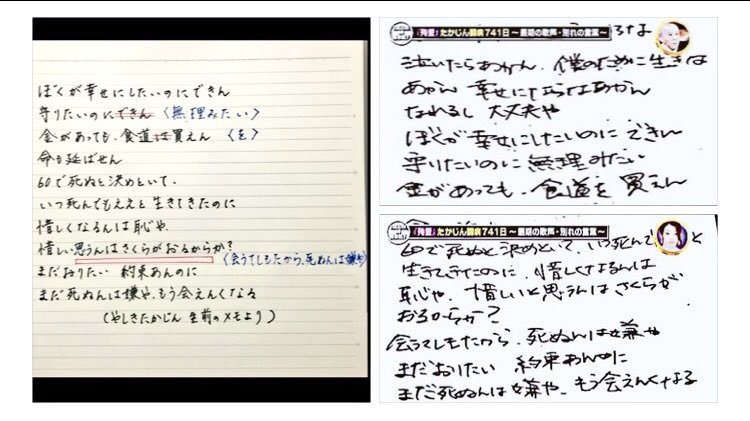 ぼくが幸せにしたいのにできん
守りたいのにできん〈無理みたい〉
金があっても、食道は買えん 〈を〉
命も延ばせん
60で死ぬと決めといて、
いつ死んでもええと生きてきたのに
惜しくなるんは恥や、
惜しい思うんはさくらがおるからか?
〈会うてしもたから、死ぬんは嫌や〉
まだおりたい 約束あんのに
まだ死ぬんは嫌や、もう会えんくなる
(やしきたかじん 生前のメモより)
『殉愛』たかじん闘病741日〜最期の歌声・別れの言葉〜
泣いたらあかん、僕のために生きな
あかん 幸せにならなあかん
なれるし 大丈夫や
ぼくが幸せにしたいのに できん
守りたいのに 無理みたい
金があっても、食道を買えん
『殉愛』たかじん闘病741日〜最期の歌声・別れの言葉〜
60で死ぬと決めといて、いつ死んで と
生きてきたのに、惜しくなるんは
恥や、惜しいと思うんはさくらが
おるからか?
会うてしもたから、死ぬんは嫌や
まだおりたい 約束あんのに
まだ死ぬんは嫌や、もう会えんくなる